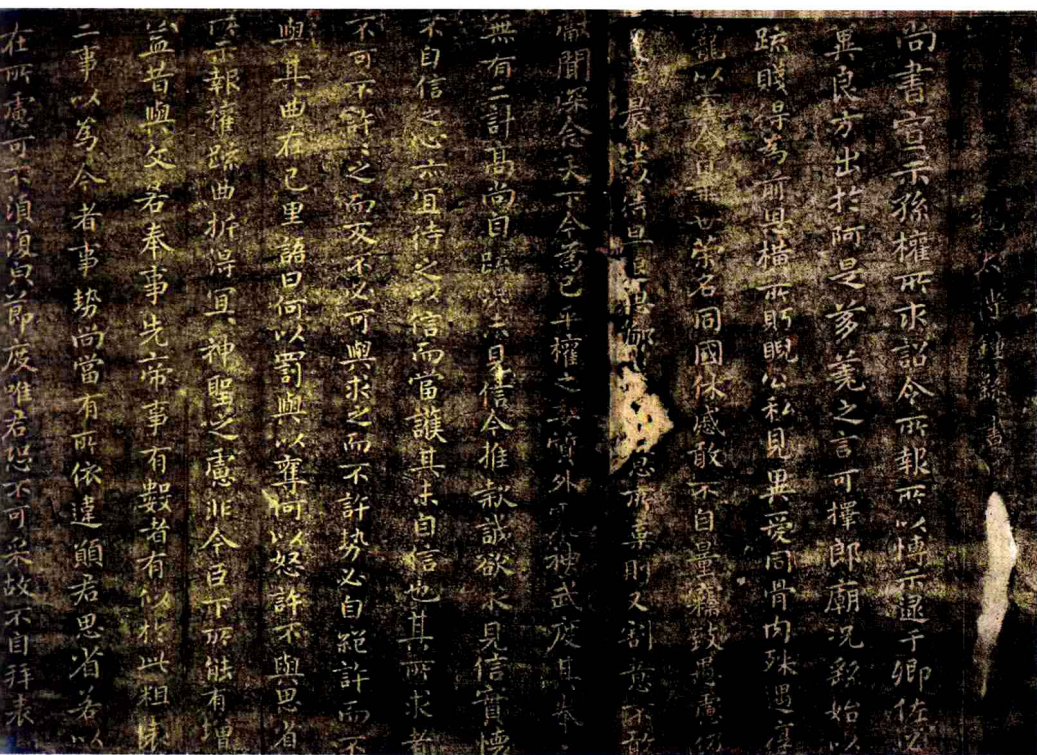 魏太傅鍾繇書
尚書宣示孫權所求詔令所報所以博示逮于卿佐必
異良方出於阿是芻蕘之言可擇郎廟況繇始以
疏賤得為前恩橫所眄睨公私見異愛同骨肉殊遇厚
寵以至今日再世榮名同國休慼敢不自量竊致愚慮仍
日達晨坐以待旦退思鄙淺聖意所棄則又割意不敢
獻聞深念天下今為已平權之委質外震神武度其拳〻
無有二計高尚自疏況未見信今推款誠欲求見信實懷
不自信之心亦宜待之以信而當護其未自信也其所求者
不可不許〻之而反不必可與求之而不許勢必自絕許而不
與其曲在己里語曰何以罰與以奪何以怒許不與思省
所示報權疏曲折得宜神聖之慮非今臣下所能有增
益昔與文若奉事先帝事有數者有似於此粗表
二事以為今者事勢尚當有所依違願君思省若以
在所慮可不須復白節度唯君恐不可采故不自拜表